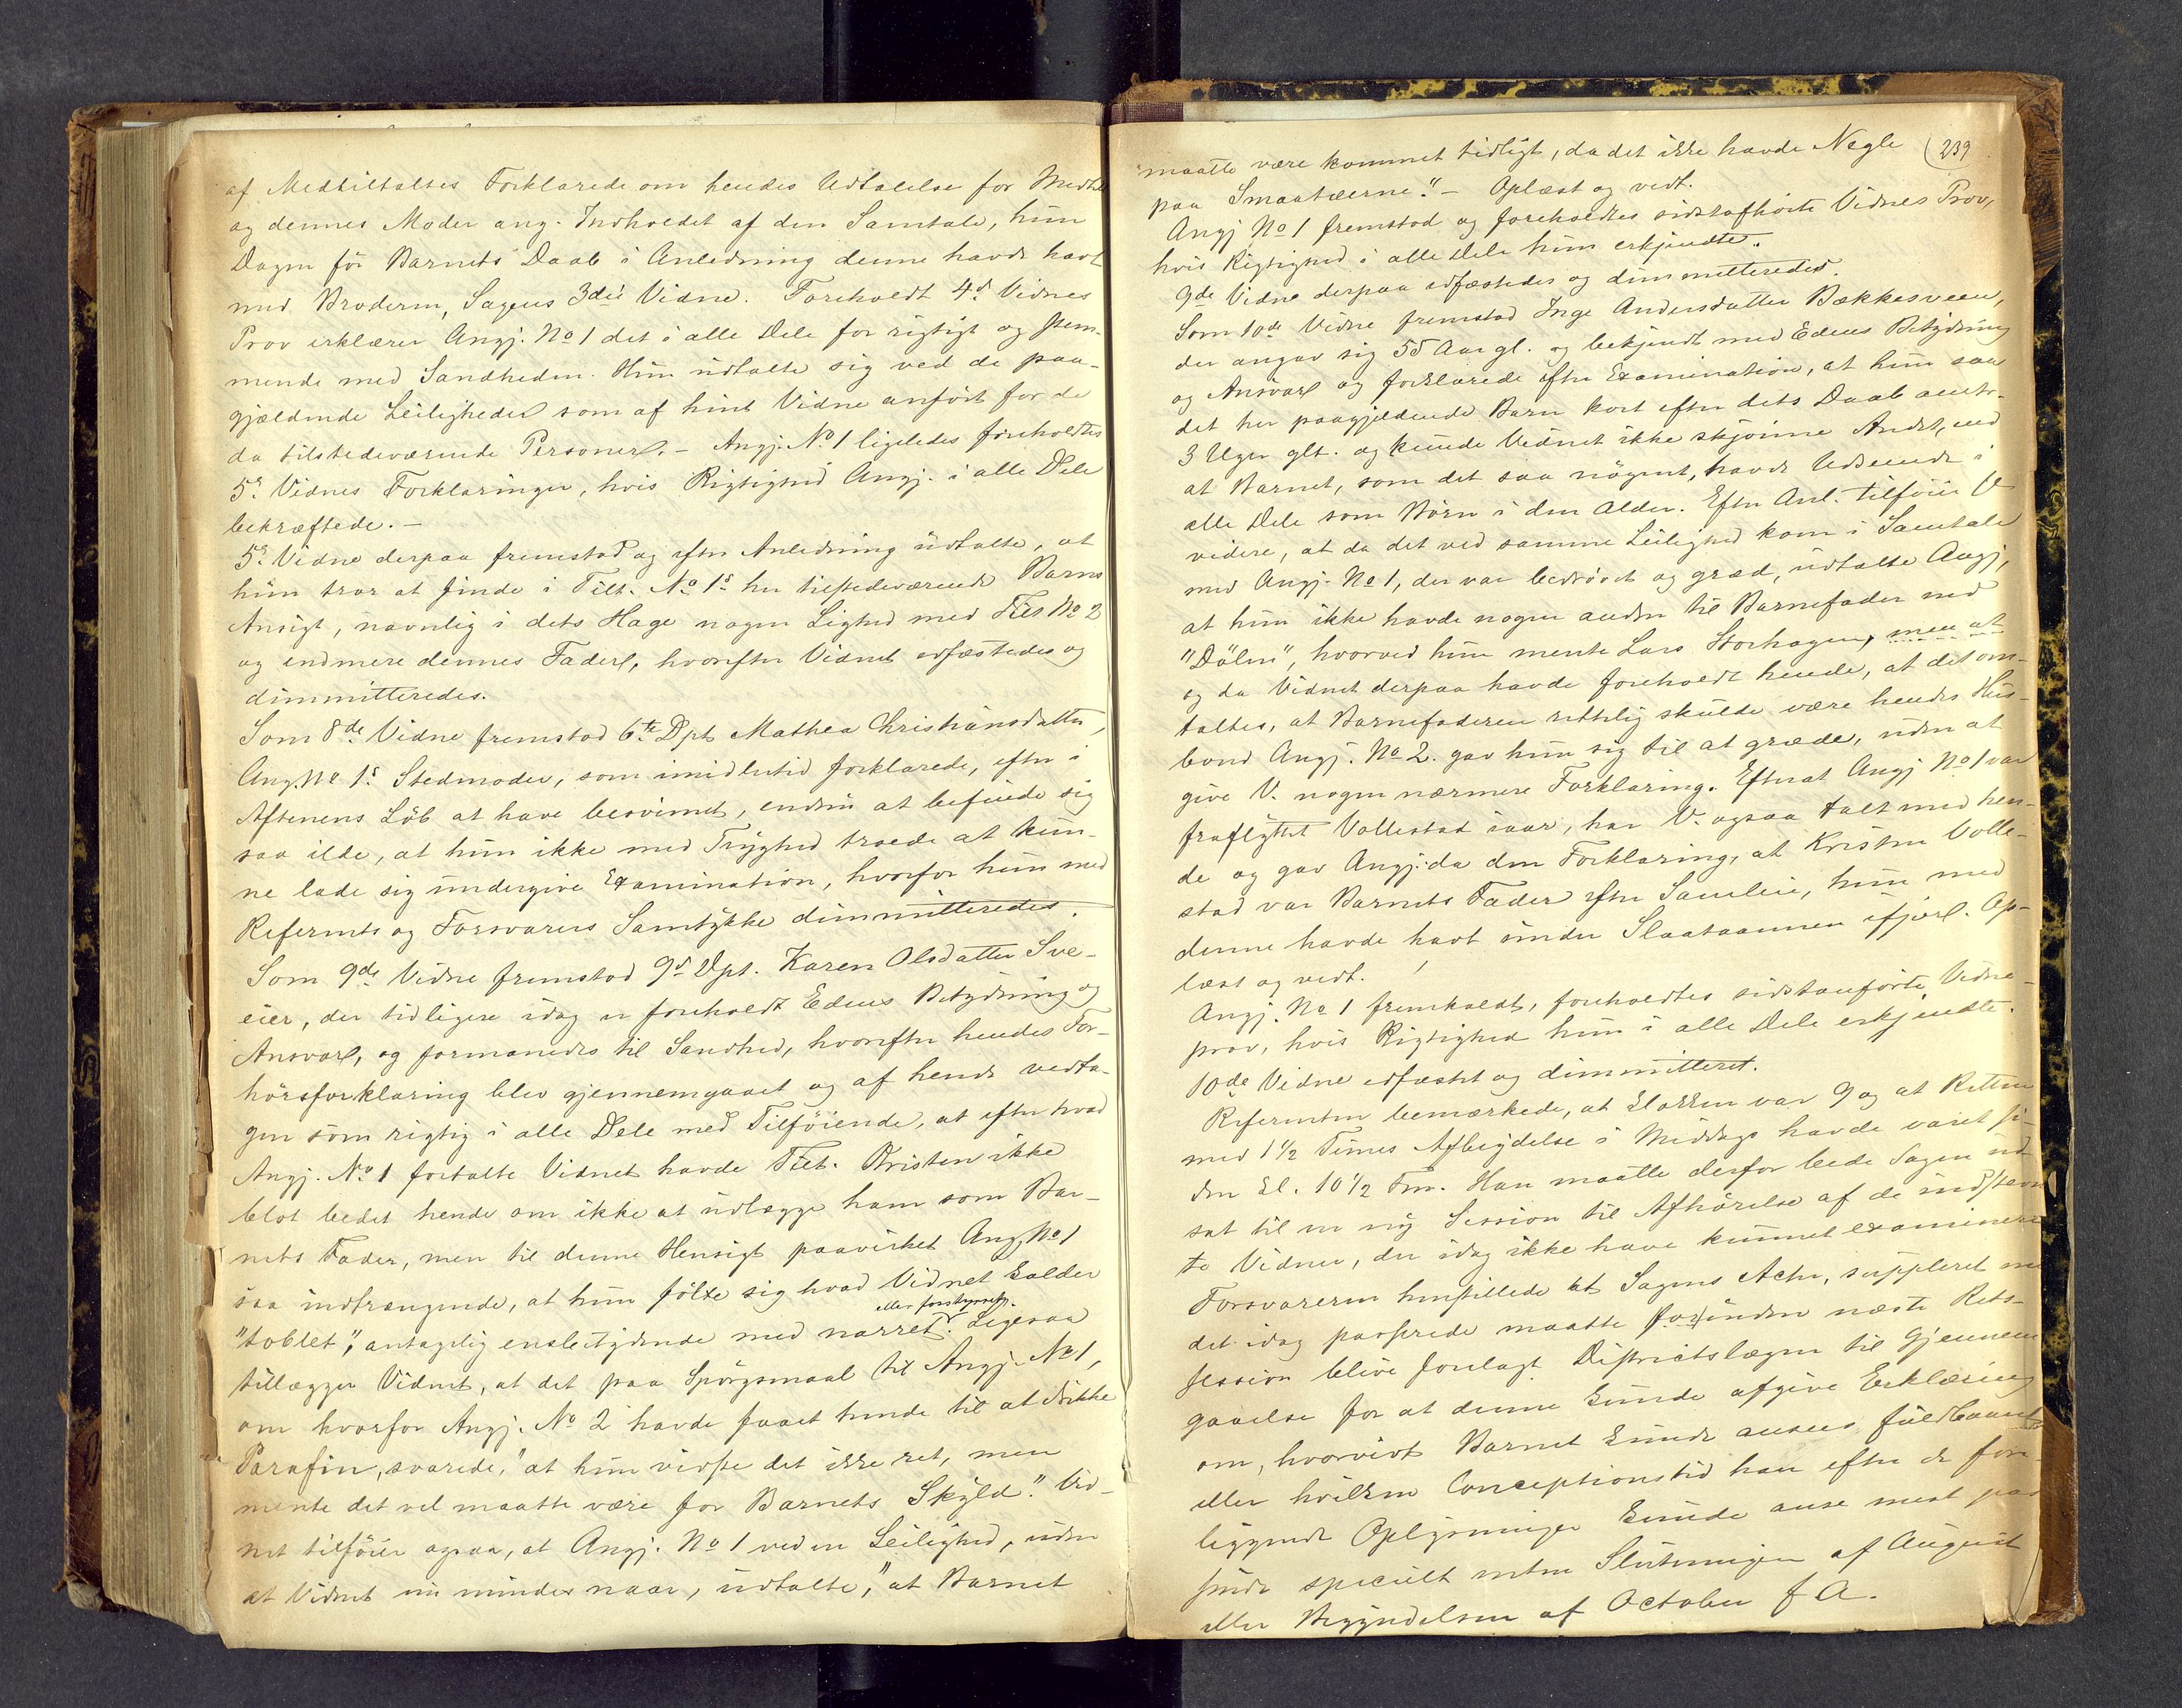 af Medtiltaltes Forklarede om hendes Udtalelse for Medt.
og dennes Moder ang. Indholdet af den Samtale, hun
Dagen før Barnets Daab i Anledning denne havde havt
med Broderen, Sagens 3die Vidne. Foreholdt 4d. Vidnes
Prov erklærer Angj. No 1 det i alle Dele for rigtigt og stem-
mende med Sandheden. Hun udtalte sig ved de paa-
gjældende Leiligheder som af hint Vidne anført for de
da tilstedeværende Personer. - Angj. No. 1 ligeledes foreholdtes
5s. Vidnes Forklaringer, hvis Rigtighed Angj. i alle Dele
bekræftede. -
5s. Vidne derpaa fremstod og efter Anledning udtalte, at
hun tror at finde i Tilt. No. 1s. her tilstedeværende Barns
Ansigt, navnlig i dets Hage nogen Lighed med Tilt No 2
og endmere dennes Fader, hvorefter Vidnet edfæstedes og
dimmitteredes.
Som 8de Vidne fremstod 6te Dpt. Mathea Christiansdatter,
Ang. No 1s. Stedmoder, som imidlertid forklarede, efter i
Aftenens Løb at have besvimet, endnu at befinde sig
saa ilde, at hun ikke med Tryghed troede at kun-
ne lade sig undergive Examination, hvorfor hun med
Referents og Forsvarers Samtykke dimmitteredes.
Som 9de Vidne fremstod 9d Dpt. Karen Olsdatter Sve-
eier, der tidligere idag er foreholdt Edens Betydning og
Ansvar, og formanedes til Sandhed, hvorefter hendes For-
hørsforklaring blev gjennemgaaet og af hende vedta-
gen som rigtig i alle Dele med Tilføiende, at efter hvad
Angj. No. 1 fortalte Vidnet havde Tilt. Kristen ikke
blot bedet hende om ikke at udlægge ham som Bar-
nets Fader, men til denne Hensigt paavirket Ang. No 1
saa indtrængende, at hun følte sig hvad Vidnet kalder
"toblet", antagelig ensbetydende med narret eller forstyrret. Ligesaa
tillægger Vidnet, at det paa Spørgsmaal til Angj. No 1,
om hvorfor Angj. No 2 havde faaet hende til at drikke
Parafin, svarede, "at hun vidste det ikke ret, men
mente det vel maatte være for Barnets Skyld." Vid-
net tilføier ogsaa, at Angj. No 1 ved en Leilighed, uden
at Vidnet nu mindes naar, udtalte, "at Barnet
239
maatte være kommet tidligt, da det ikke havde Negle
paa Smaatæerne." - Oplæst og vedt.
Angj No 1 fremstod og foreholdtes sidstafhørte Vidnes Prov,
hvis Rigtighed i alle Dele hun erkjendte.
9de Vidne derpaa edfæstedes og dimmitteredes.
Som 10de Vidne fremstod Inge Andersdatter Bækkesveen,
der angav sig 55 Aar gl. og bekjendt med Edens Betydning
og Ansvar og forklarede efter Examination, at hun saa
det her paagjeldende Barn kort efter dets Daab
3 Uger glt. og kunde Vidnet ikke skjønne Andet, end
at Barnet, som det saa nøgent, havde Udseende i
alle Dele som Børn i den Alder. Efter Anl. tilføier V
videre, at da det ved samme Leilighed kom i Samtale
med Angj. No 1, der var bedrøvet og græd, udtalte Angj,
at hun ikke havde nogen anden til Barnefader end
"Dølen", hvorved hun mente Lars Storhagen, men at
og da Vidnet derpaa havde foreholdt hende, at det om-
taltes, at Barnefaderen rettelig skulde være hendes Hus-
bond Angj. No 2. gav hun sig til at græde, uden at
give V. nogen nærmere Forklaring. Efterat Angj No 1 var
fraflyttet Vollestad iaar, har V. ogsaa talt med hen-
de og gav Angj. da den Forklaring, at Kristen Volle-
stad var Barnets Fader efter Samleie, hun med
denne havde havt under Slaataannen ifjor. Op-
læst og vedt.
Angj. No 1 fremkaldt, foreholdtes sidstanførte Vidne-
prov, hvis Rigtighed hun i alle Dele erkjendte.
10de Vidne edfæstet og dimmitteret.
Referenten bemærkede, at Klokken var 9 og at Retten
med 1½ Times Afbrydelse i Middags havde varet si-
den kl. 10½ Fm. Han maatte derfor bede Sagen ud-
sat til en ny Session til Afhørelse af de indstevn
te Vidner, der idag ikke have kunnet examineres
Forsvareren henstillede at Sagens Acter, suppleret med
det idag passerede maatte for inden næste Rets-
session blive forelagt Distriktslægen til Gjennem
gaaelse for at denne kunde afgive Erklæring
om, hvorvidt Barnet kunde ansees fuldbaaret
eller hvilken Conceptionstid han efter de fore-
liggende Oplysninger kunde anse mest pas
sende specielt enten Slutningen af August
eller Begyndelsen af October f A.